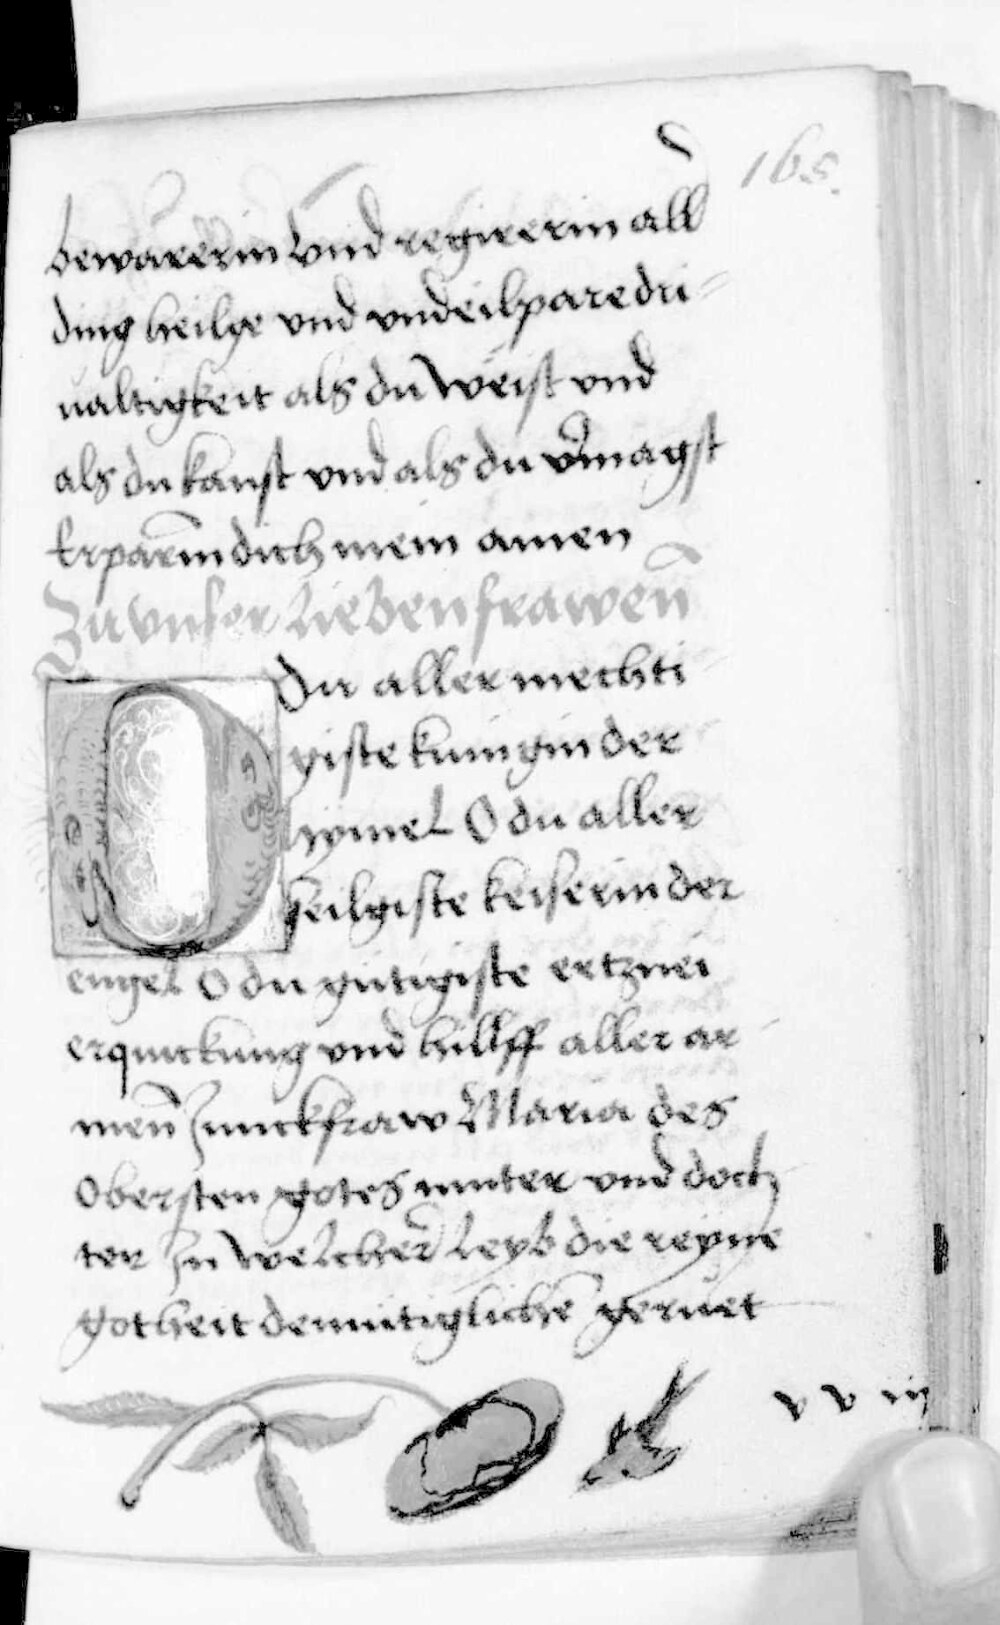 165.
bewarerin vnd regirerin all
ding heilge vnd vndeilpare dri-
ualtigkeit als du weist vnd
als du kanst vnd als du v̄magst
Erparm̄ dich mein amen
Zu vnser lieben frawen̄
O Du aller mechti
giste kunigin der
hymel O du aller
heilgiste keiserin der
engel O du gutigiste ertznei
erquickung vnd hillff aller ar-
men̄ Junckfraw Maria des
Obersten gotes muter vnd doch
ter In welcher leyb die reyne
gotheit demutiglichē geruet
v v iij